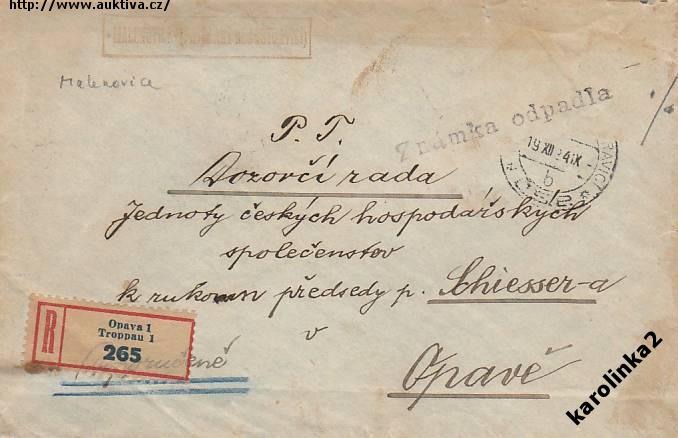 http://www.auktiva.cz/
Malenovice
Známka odpadla
19 XII 34 IX
b
P. T.
Dozorčí rada
Jednoty českých hospodářských
společenstev
k rukoum předsedy p. Schiesser-a
v
Opavě
R
Opava 1
Troppau 1
265
karolinka2